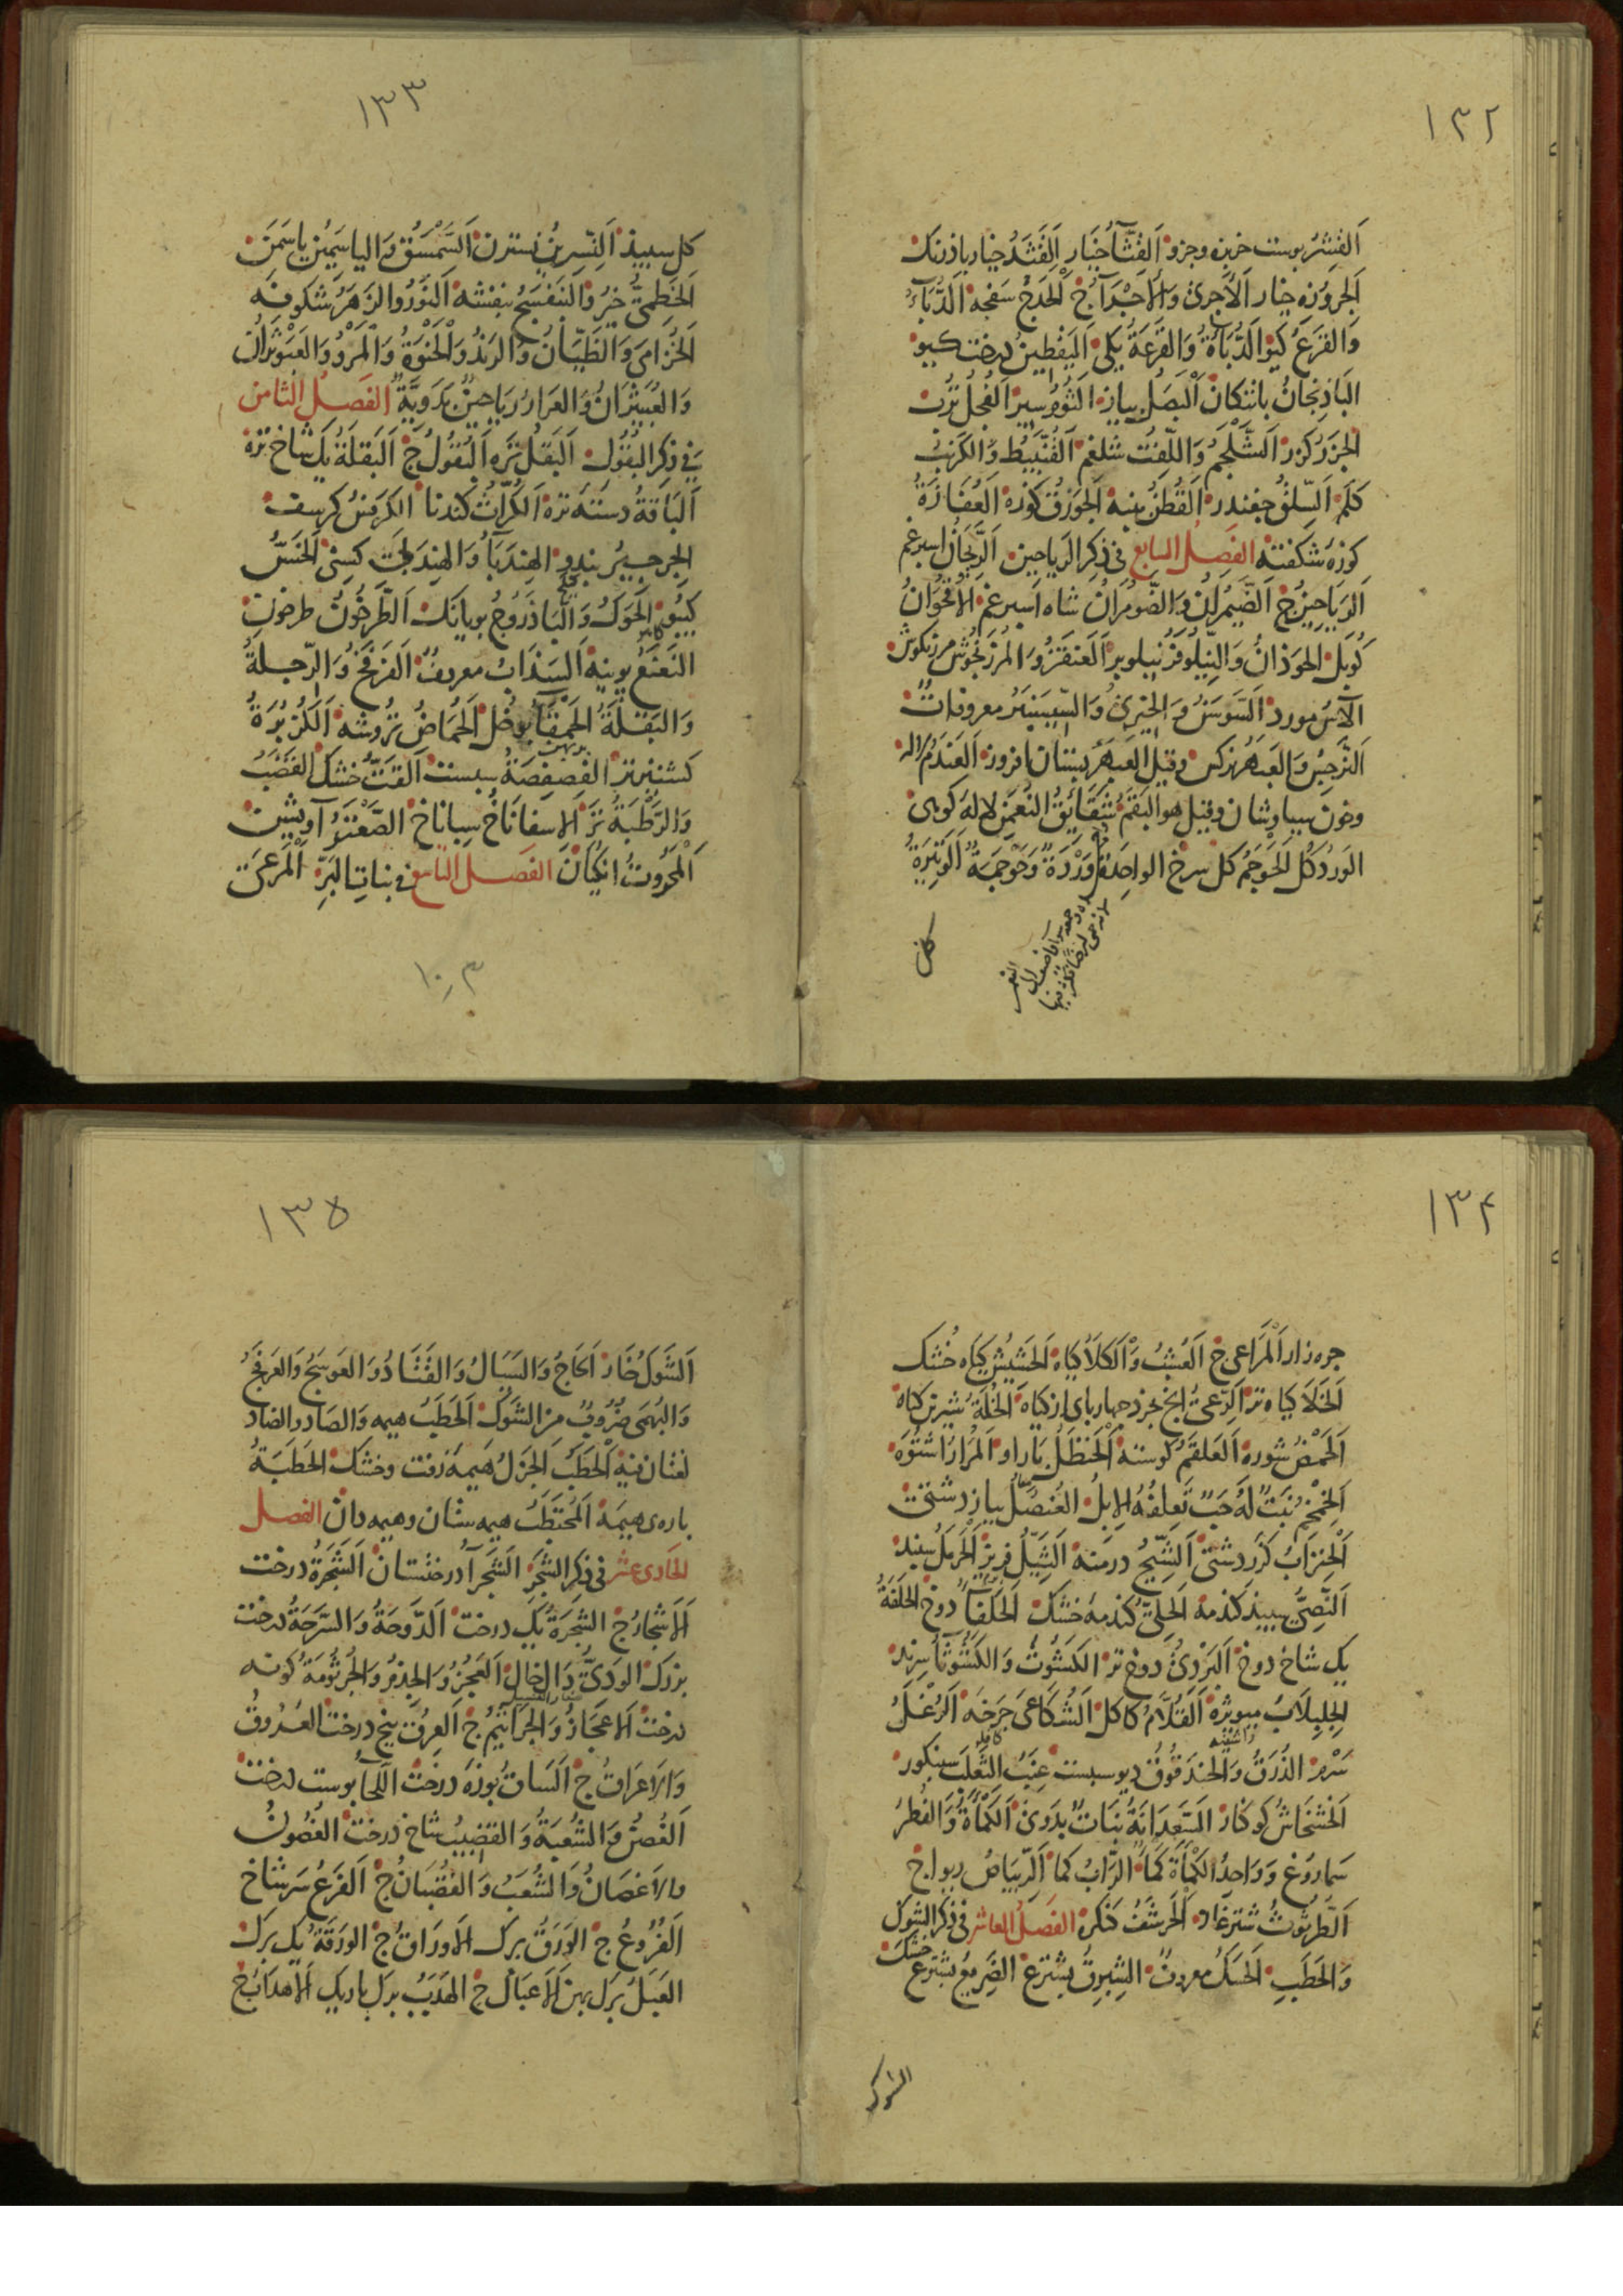 ١٣٢
اَلقِشْرُ پوست خربزه وجزو اَلقِثَّآءُ خِیَار اَلقَثَدُ خیار باذرنک
اَلجَروُ زه خیار اَلاَجرِی وَالاَجْرَآءُ ج اَلحَدَجُ سفجه اَلدُّبَآءُ
وَالقَرعُ کَدو اَلدُّبَآءَةُ وَالقَرعَةُ یَکی اَلیَقطِینُ درخت کدو
البَاذِنجَانُ باتنکان اَلبَصَلُ پیاز اَلثُّومُ سیر اَلفُجلُ تُرب
الجَزَرُ کزر اَلشَّلجَمُ وَاللِّفتُ شلغم اَلقُنَّبِیطُ وَالکَرَنبُ
کَلَم اَلسِّلقُ چغندر اَلقُطنُ پنبه اَلجَوزَقُ کوزه العُفَازَةُ
کوزهٔ شکفته الفصل السابع فی ذکر الریاحین اَلرَّیحَانُ اسپرغم
اَلرَیَاحِینُ ج اَلضَّیمُرَانُ وَالضَّومُرَانُ شاه اَسپرغم الاُقحُوَانُ
کوبل الحَوذَانُ وَالنِّیلُوفَرُ نیلوبر اَلعَنقَزُ وَالمَرزَنجُوشُ مرزنکوش
اَلآسُ مورد اَلسَّوسَنُ وَالخِیرِیُّ وَالسِّیسَنبَرُ معروفاتٌ
اَلنَّرجِسُ وَالعَبهَرُ نرکس وقیل العَبهَر بستان افروز اَلعَندَمُ لاله
وخون سیاوشان وقیل هو البَقَّمُ شَقَائِقُ النُّعمَن لاله کوهی
الوَردُ کل اَلحَوجَمُ کل سرخ الواحِدَة وَرْدَةٌ وَحَوْجَمَةٌ اَلوَتِیرَةُ
کل
١٣٣
کل سپید اَلنِّسرِینُ نسترن اَلسَّمْسَقُ وَالیاسَمِینُ یاسَمَن
اَلخَطِمِیُّ خیرُو اَلبَنَفسَجُ بنفشه اَلنَّورُ والزَهَرُ شکوفه
اَلخُزَامَی وَالظَّیَّانُ وَالرَندُ وَالحَنوَةُ وَالمَرْوُ وَالعَبَوْثَرانُ
وَالعُبَیثَرَانُ وَالعَرَارُ رَیَاحِینُ بَدَوِیَّةٌ الفصل الثامن
فی ذِکرِ البُقُول اَلبَقلُ تَرَه اَلبُقُولُ ج اَلبَقلَةُ یک شاخ تره
اَلبَاقَةُ دسته تره اَلکُرَّاثُ کندنا الکَرَفسُ کرسف
الجِرجِیرُ بندو الهِندَبَآءُ وَالهِندَبُ کسنی اَلخَسُّ
کیبو اَلحَوکُ وَالبَاذَرُوجُ بویانک اَلطَّرخُونُ طرخون
النَعنَعُ پوینه اَلسَذَابُ معروفٌ اَلفَرفَخُ وَالرِّجلَةُ
وَالبَقلَةُ الحَمقَآءُ بوخل اَلحُمَّاضُ تُروشه اَلکُزبُرَةُ
کشنیز تر الفِصفِصَةُ سبست اَلقَتُّ خشک القَضبُ
وَالرَّطْبَةُ تر الاِسفَانَاخُ سپاناخ الصَّعْتَرُ آویشن
اَلمَحرُوتُ انکیان الفصل التاسع فی بنات البَرّ اَلمَرعَی
١٠٣
١٣٤
چره زار اَلمَرَاعی ج اَلعُشبُ وَالکَلَأُ کیاه اَلحَشِیشُ کیاه خُشک
اَلخَلَا کیاه تر اَلرِّعیُ انج بخرد چهارپای از کیاه اَلخُلَّةُ شیرین کیاه
اَلحَمْضُ شوره اَلعَلقَمُ کوسته اَلحَنظَلُ یاراو المُرَارُ اشتوه
اَلخِمْخِمُ نَبَتٌ لَهُ حَبّ تَعلِفُهُ الاِبِلُ العُنصُلُ پیاز دشتی
اَلحِنزَابُ کَزَر دشتی اَلشِّیحُ درمنه اَلثَّیِّلُ فریز اَلحَرمَلُ سپند
اَلنَّصِیُّ سپید کندمه اَلحَلِیُّ کندمهٔ خشک اَلحَلفَآءُ دوخ الحَلَفَةُ
یک شاخ دوخ اَلبَردِیُّ دوخ تر الکَشُوثُ وَالکَشُوثَآءُ سِرِند
الجِلِبلَابُ میویژه اَلقُلَّامُ کاکل اَلشُکَاعَی جَرخَه اَلرُغلُ
سَرمز الذُرَقُ وَالحَندَقُوقُ دیوسبست عِنَبُ الثَّعلَب سینکور
اَلخَشخَاشُ کوکنار اَلسَعدَانَةُ نبَاتٌ بدَوِی اَلکَمأَةُ وَالفُطرُ
سَماروغ وَوَاحِدُ الکَمأَة کَمأٌ الرَّابُ کما اَلرِّیبَاصُ ریواج
اَلطُرثُوثُ شترغاد اَلحَرشَفُ کنکر الفصل العاشر فی ذکر الشوک
وَالحَطَبِ اَلحَسَکُ معروفٌ الشِبرِقُ بشترغ الضَرِیعُ بشترغ خشک
الشوک
١٣٥
اَلشَّوکُ خَار اَلحَاجُ وَالسَیَالُ وَالقَتَادُ وَالعَوسَجُ وَالعَرفَجُ
وَالبُهمَی ضُرُوبٌ مِن الشَوک اَلحَطَبُ هیمه وَالصَاد والضاد
لغتان فیه اَلحَطَبُ الجَزلُ هَیمَه زفت وخشک الحَطَبَةُ
پاره هیمَه اَلمُحتَطَبُ هیمه ستان وهیمه دان الفصل
الحادی عشر فی ذکر الشجر اَلشَجرَآءُ درختستان اَلشَّجَرَةُ درخت
اَلاَشجَارُ ج الشَجَرَةُ یک درخت اَلدَّوحَةُ وَالسَّرحَةُ درخت
بزرک الوَدِیُّ دَال نهال اَلعَجُزُ وَالجِذمُ وَالجُرثُومَةُ کونه
درخت اَلاَعجَازُ وَالجَرَاثِیمُ ج اَلعِرقُ بیخ درخت العُرُوقُ
وَالاَعرَاقُ ج اَلسَاقُ بوزه درخت اَللِحَآءُ پوست درخت
اَلغُصنُ وَالشُعبَةُ وَالقَضِیبُ شاخ درخت الغُصُونُ
والاَغصَانُ وَالشُعَبُ وَالقُضبَانُ ج اَلفَرعُ سَر شاخ
اَلفُرُوعُ ج الوَرَقُ برک اَلاَورَاقُ ج الوَرَقَةُ یک برک
العَبَلُ برک پهن اَلاَعبَالُ ج الهَدَبُ برک باریک اَلاَهدَابُ ج